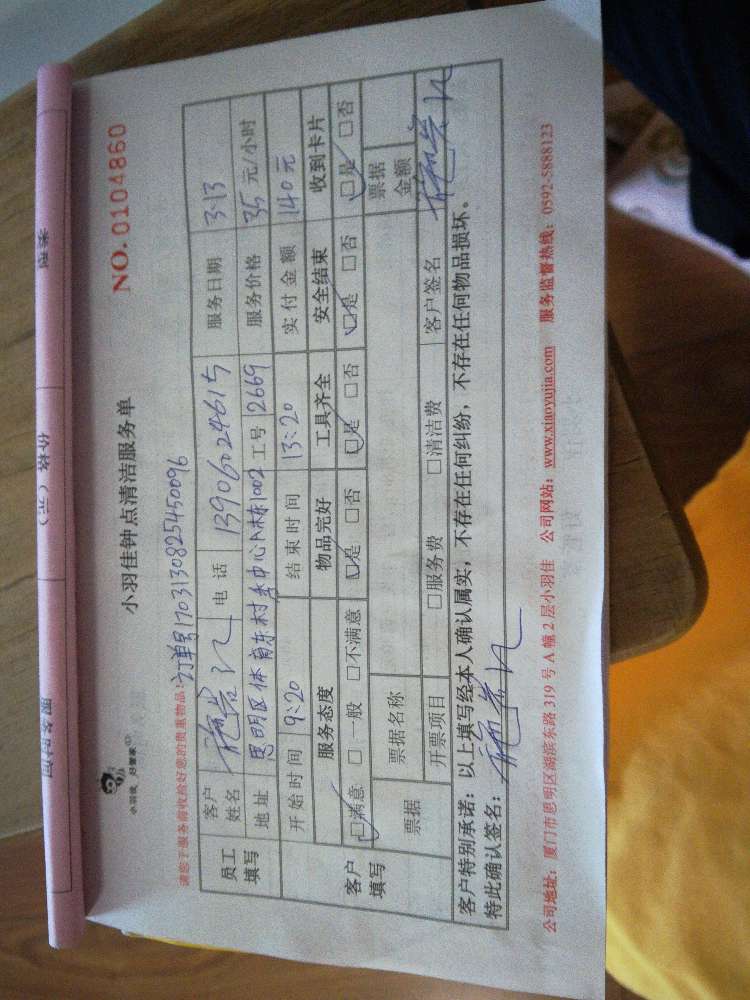 类型
价格（元）
小羽佳 好管家
小羽佳钟点清洁服务单
NO. 0104860
请您于服务前收检好您的贵重物品! 订单号1703130825450096
员工填写
客户姓名 电话 13906024615 服务日期 3.13
地址 思明区体育东村 中心A栋1002 工号 2669 服务价格 35元/小时
开始时间 9:20 结束时间 13:20 实付金额 140元
客户填写
服务态度 物品完好 工具齐全 安全结束 收到卡片
☑满意 □一般 □不满意 ☑是 □否 ☑是 □否 ☑是 □否 ☑是 □否
票据 票据名称 票据金额
开票项目 □服务费 □清洁费 客户签名
客户特别承诺：以上填写经本人确认属实，不存在任何纠纷，不存在任何物品损坏。
特此确认签名：
公司地址：厦门市思明区湖滨东路 319 号 A 幢 2 层小羽佳 公司网站：www.xiaoyujia.com 服务监督热线：0592-5888123